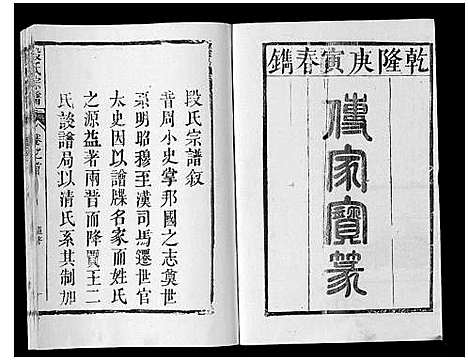 乾隆庚寅春鐫
傳家寶篆
段氏宗譜叙
昔周小史掌邦國之志奠世
系明昭穆至漢司馬遷世官
太史因以譜牒名家而姓氏
之源益著兩晉而降賈王二
氏談譜局以清氏系其制加
段氏宗譜
卷之首